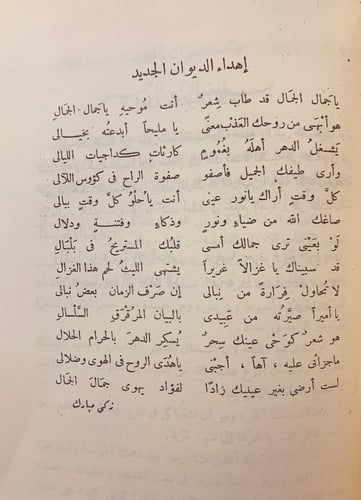 إهداء الديوان الجديد
يا جمال الجمال قد طاب شِعرٌ أنت مُوحيهِ يا جمال الجمالِ
هو أَبْهَى من روحك العَذْب معنًى يا مليحاً أبدعتُه بخيـالى
يَشغَلُ الدهر أهلَهُ بغُمُومٍ كارثاتٍ كداجيات الليالى
وأرى طيفك الجميل فأصفو صفوة الراح فى كؤوس اللآلى
كلَّ وقتٍ أراك يا نور عينى أنت يا حُلْوُ كلَّ وقتٍ ببالى
صاغك الله من ضياءٍ ونورٍ وذكاءٍ وفتنـــةٍ ودلال
لَوْ بعَيْنى ترى جمالك أمسى قلبُك المستريحُ فى بَلْبَالِ
قد سبيناك يا غزالاً غريراً يشتهى الليثُ لحم هذا الغزالِ
لا تُحاوِلْ فِرارةً من نِبالى إن صَرْفَ الزمان بعضُ نبالى
يا أميراً صيَّرتُه من عَبِيدى بالبيان المُرَقْرَقِ السَّلْسَالِ
هو شعرٌ كوَحْىِ عينك سِحرٌ يُسكِر الدهرَ بالحرام الحلال
ما جزائى عليه ، آهاً ، أجبْنى يا هُدَى الروح فى الهوى وضلالى
لست أرضى بغير عينيك زاداً لفؤاد يهوى جمالَ الجمال
زكى مبارك